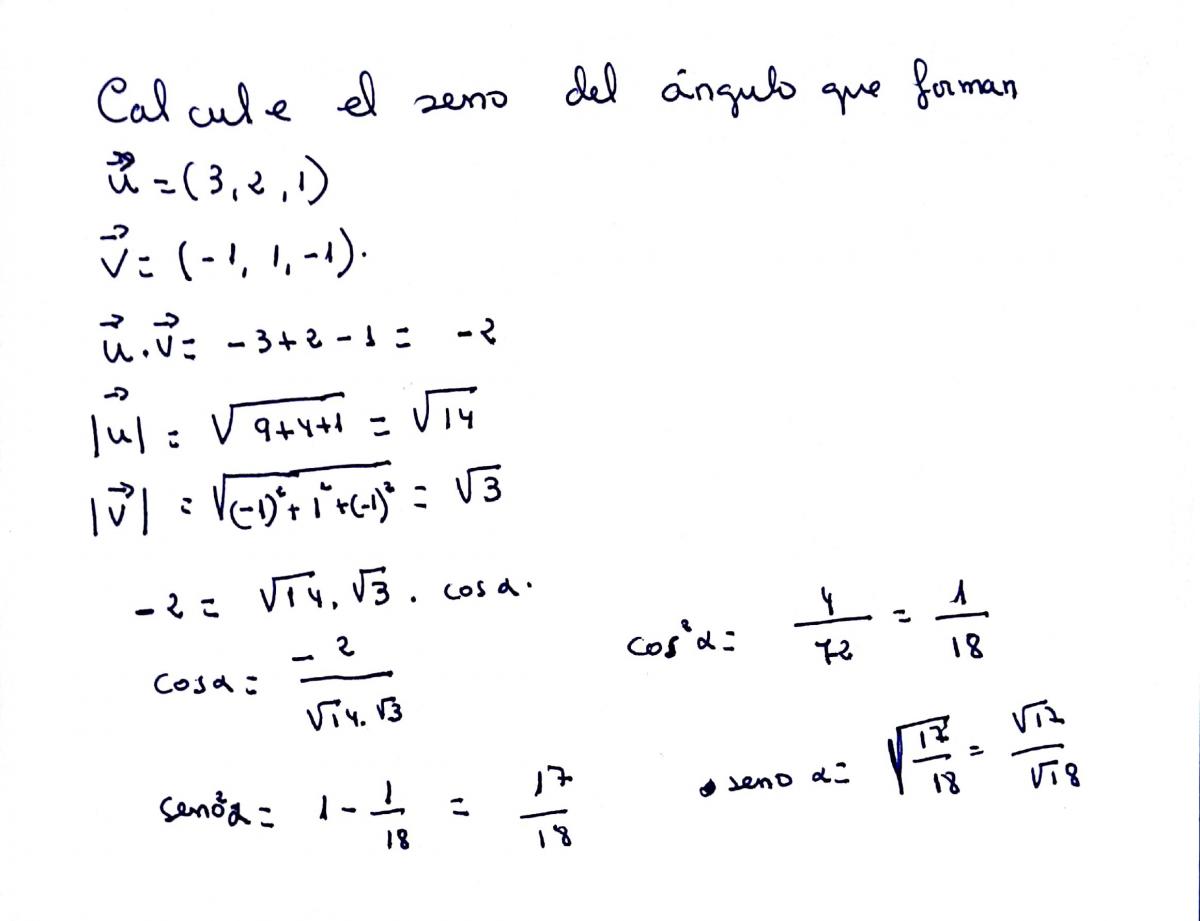 Calcule el seno del ángulo que forman
u⃗ = (3, 2, 1)
v⃗ = (-1, 1, -1).
u⃗ . v⃗ = -3+2-1 = -2
|u⃗| = √(9+4+1) = √14
|v⃗| = √((-1)²+1²+(-1)²) = √3
-2 = √14 . √3 . cos α.
cos α = -2/(√14 . √3)
cos²α = 4/72 = 1/18
seno²α = 1 - 1/18 = 17/18
seno α = √(17/18) = √17/√18